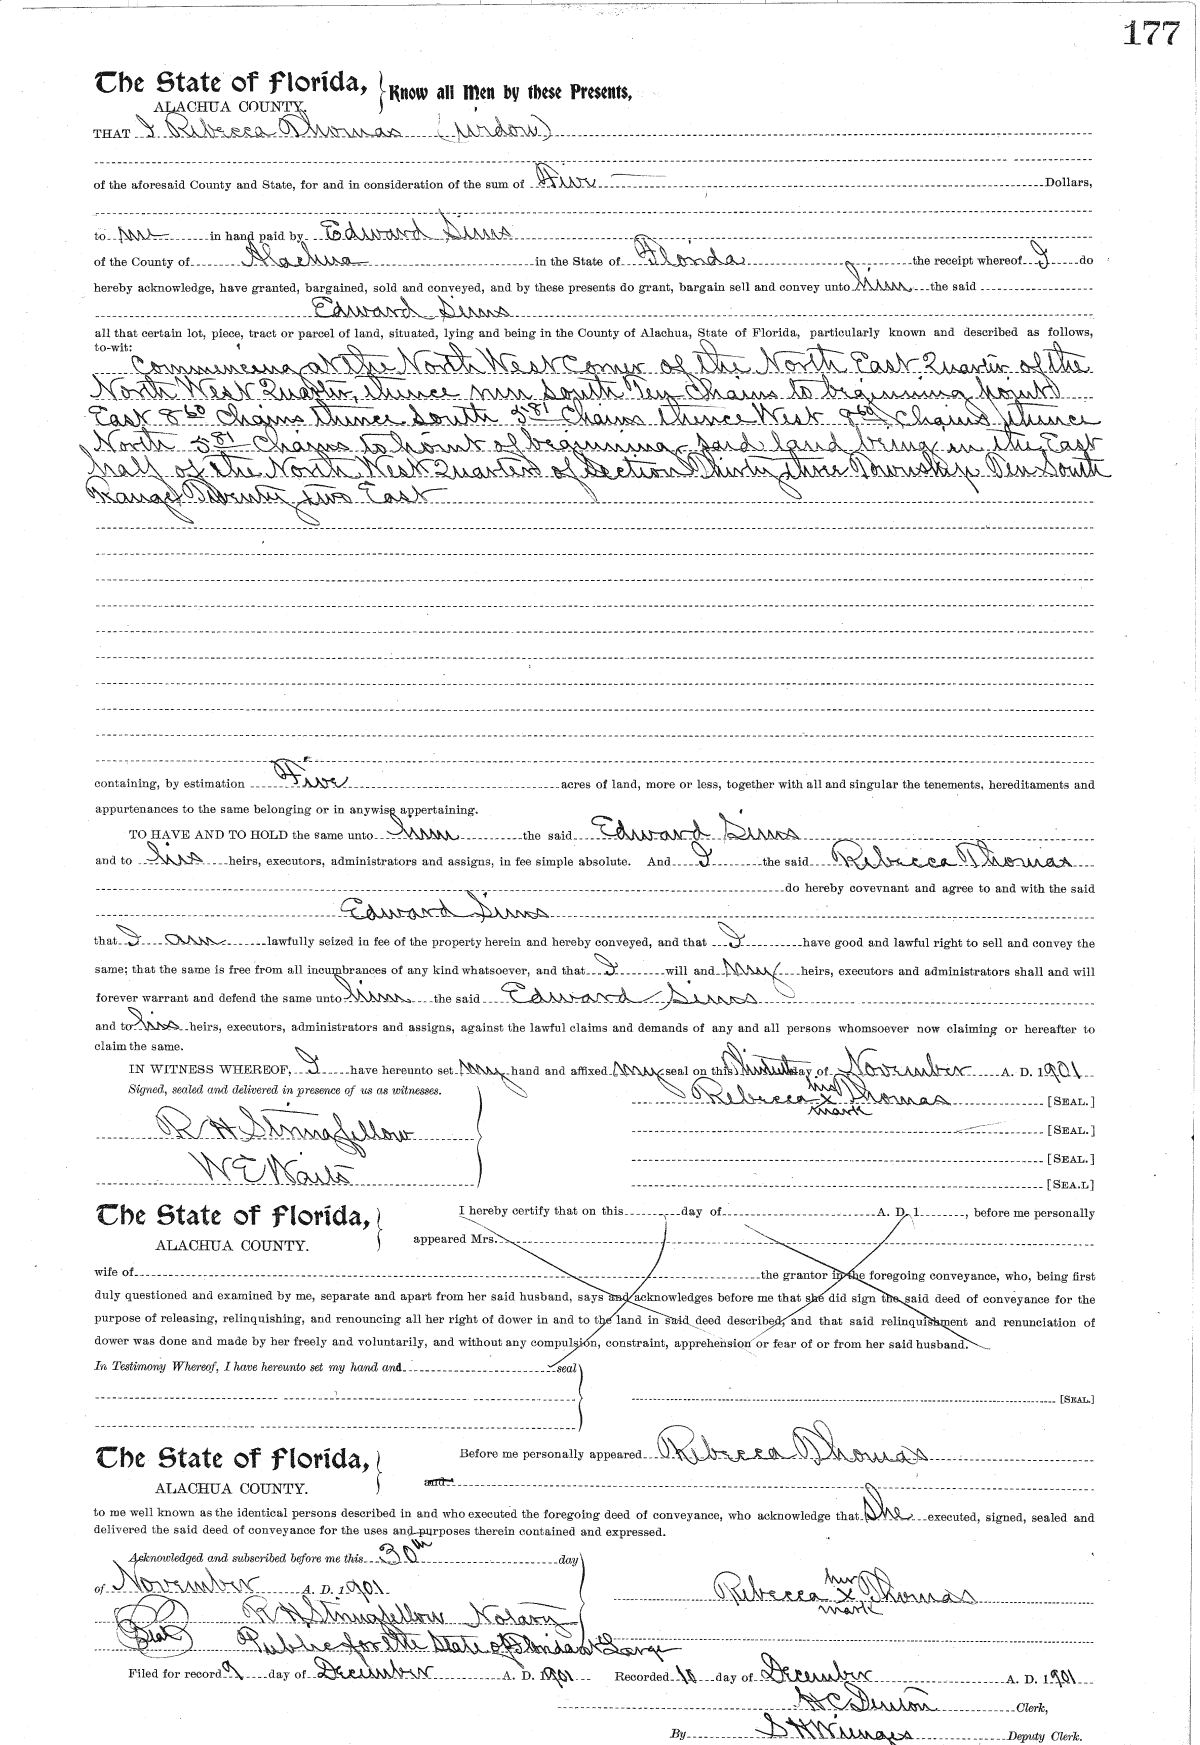 177
The State of Florida,
ALACHUA COUNTY.
Know all Men by these Presents,
THAT I Rebecca Thomas (widow)
of the aforesaid County and State, for and in consideration of the sum of Five Dollars,
to me in hand paid by Edward Sims
of the County of Alachua in the State of Florida the receipt whereof I do
hereby acknowledge, have granted, bargained, sold and conveyed, and by these presents do grant, bargain sell and convey unto him the said
Edward Sims
all that certain lot, piece, tract or parcel of land, situated, lying and being in the County of Alachua, State of Florida, particularly known and described as follows,
to-wit:
Commencing at the North West Corner of the North East Quarter of the
North West Quarter, thence run South Ten Chains to beginning point
East 8 60 Chains thence South 5 81 Chains thence West 8 60 Chains, thence
North 5 81 Chains to point of beginning, said land being in the East
half of the North West Quarter of Section Thirty three Township Ten South
Range Twenty two East
containing, by estimation Five acres of land, more or less, together with all and singular the tenements, hereditaments and
appurtenances to the same belonging or in anywise appertaining.
TO HAVE AND TO HOLD the same unto him the said Edward Sims
and to his heirs, executors, administrators and assigns, in fee simple absolute. And I the said Rebecca Thomas
do hereby covevnant and agree to and with the said
Edward Sims
that I am lawfully seized in fee of the property herein and hereby conveyed, and that I have good and lawful right to sell and convey the
same; that the same is free from all incumbrances of any kind whatsoever, and that I will and my heirs, executors and administrators shall and will
forever warrant and defend the same unto him the said Edward Sims
and to his heirs, executors, administrators and assigns, against the lawful claims and demands of any and all persons whomsoever now claiming or hereafter to
claim the same.
IN WITNESS WHEREOF, I have hereunto set my hand and affixed my seal on this Thirtieth day of November A. D. 1901
Signed, sealed and delivered in presence of us as witnesses.
Rebecca her x mark Thomas [SEAL.]
R H Stringfellow [SEAL.]
W E Waits [SEAL.]
[SEA.L]
The State of Florida,
ALACHUA COUNTY.
I hereby certify that on this day of A. D. 1 , before me personally
appeared Mrs.
wife of the grantor in the foregoing conveyance, who, being first
duly questioned and examined by me, separate and apart from her said husband, says and acknowledges before me that she did sign the said deed of conveyance for the
purpose of releasing, relinquishing, and renouncing all her right of dower in and to the land in said deed described, and that said relinquishment and renunciation of
dower was done and made by her freely and voluntarily, and without any compulsion, constraint, apprehension or fear of or from her said husband.
In Testimony Whereof, I have hereunto set my hand and seal
[SEAL.]
The State of Florida,
ALACHUA COUNTY.
Before me personally appeared Rebecca Thomas
and
to me well known as the identical persons described in and who executed the foregoing deed of conveyance, who acknowledge that She executed, signed, sealed and
delivered the said deed of conveyance for the uses and purposes therein contained and expressed.
Acknowledged and subscribed before me this 30th day
of November A. D. 1901
Rebecca her x mark Thomas
R H Stringfellow Notary
Seal Public for the State of Florida at Large
Filed for record 9 day of December A. D. 1901 Recorded 10 day of December A. D. 1901
H C Denton Clerk,
By S H Wienges Deputy Clerk.